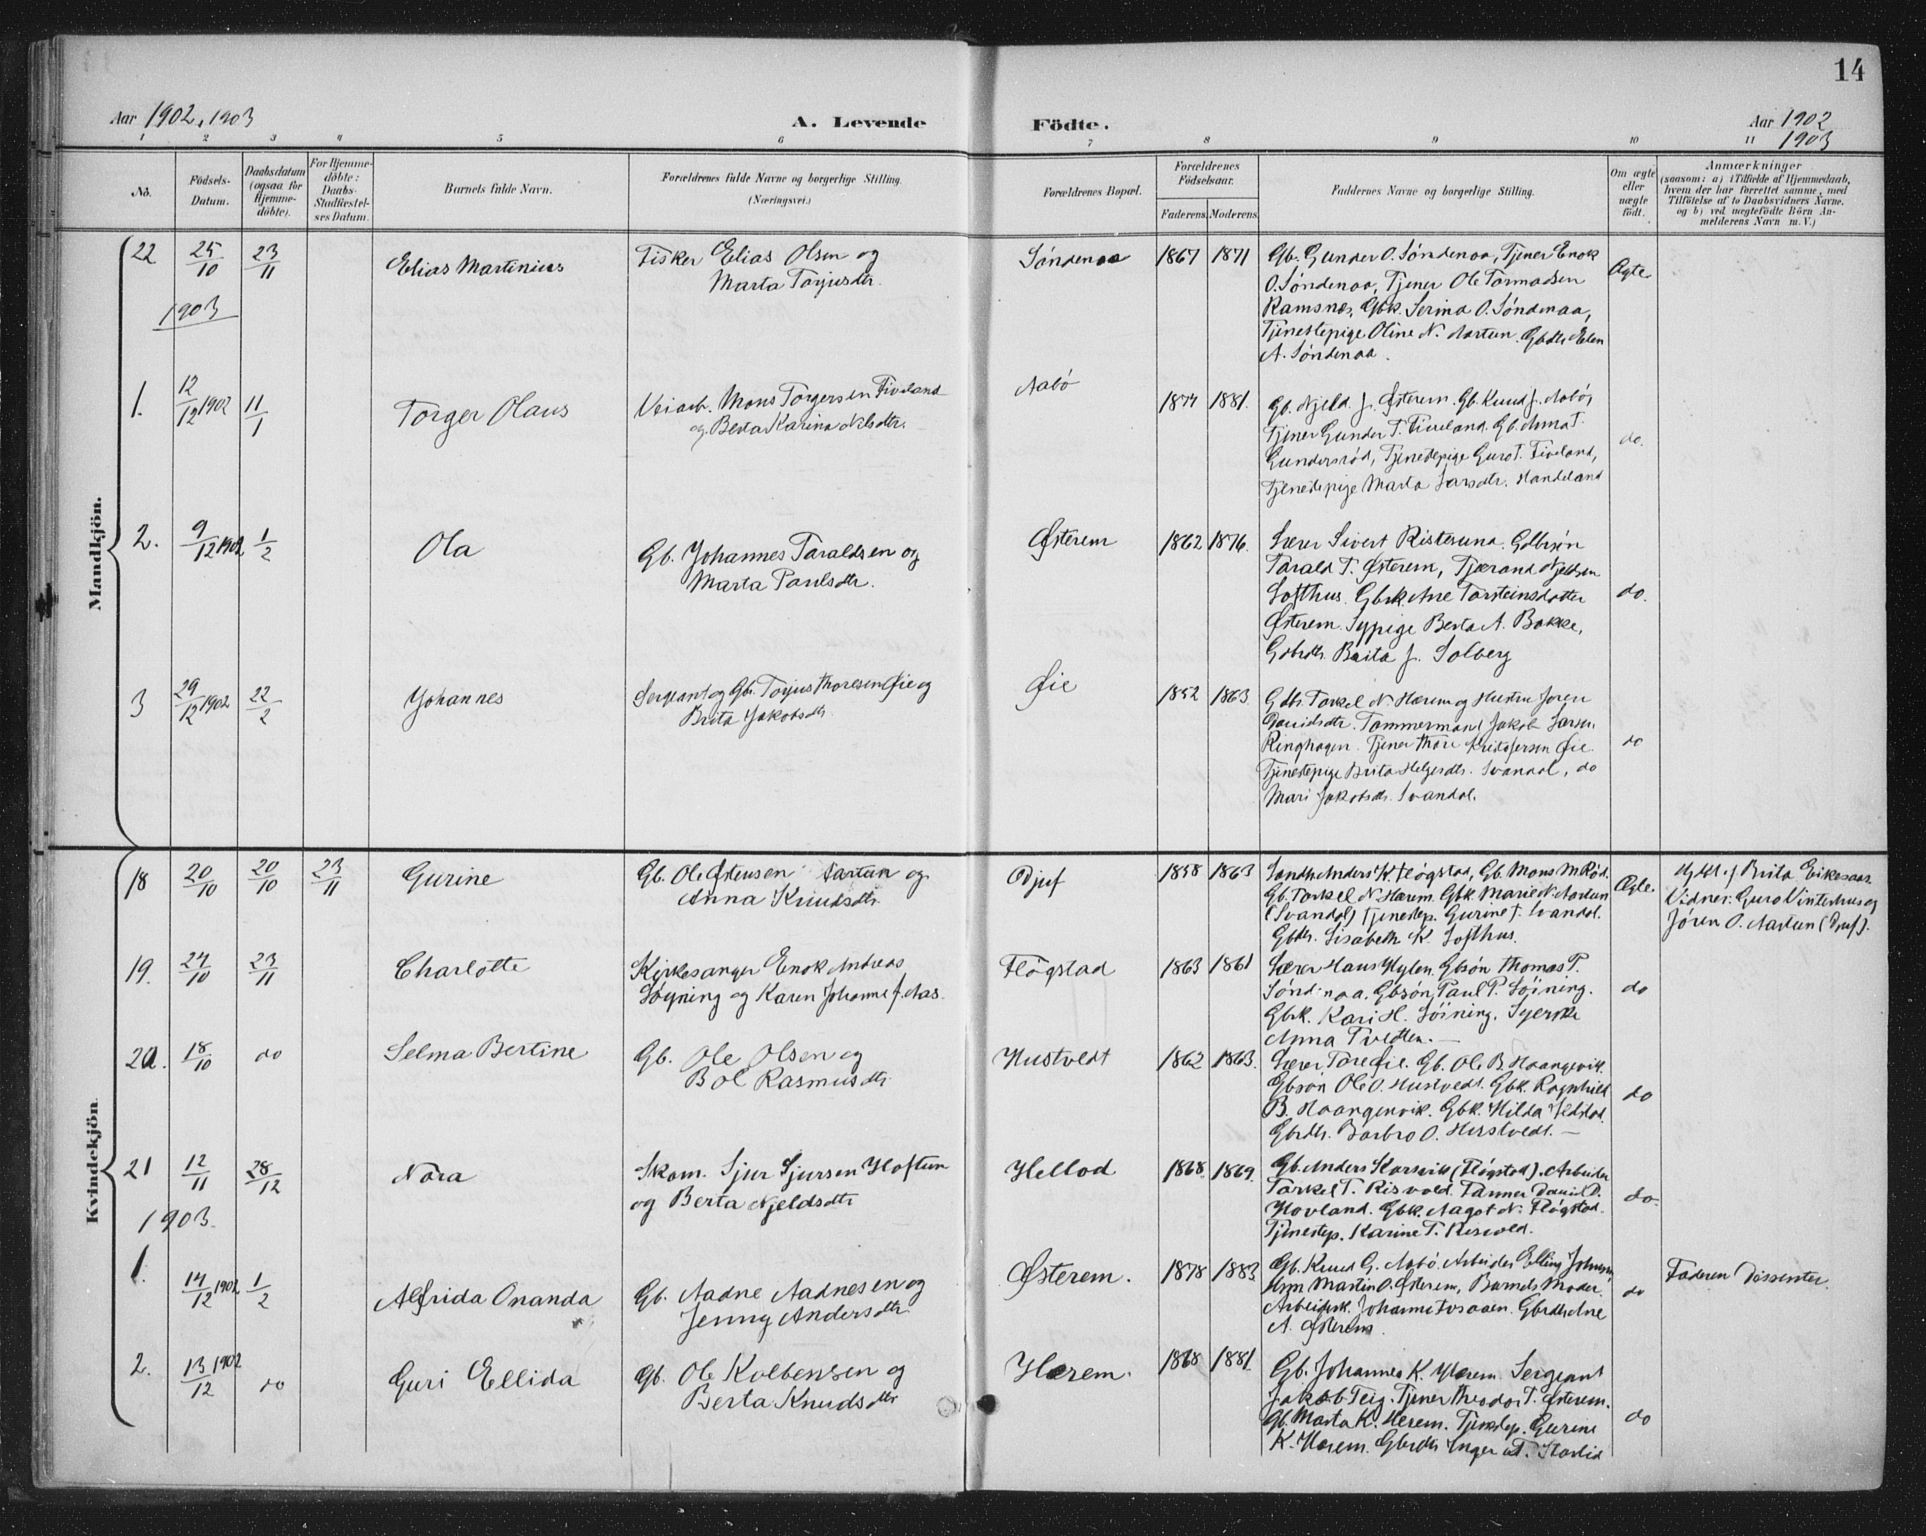 14
Aar 1902, 1903
A. Levende
Födte.
Aar 1902
1903
1 2 3 4 5 6 7 8 9 10 11
No.
Födsels-
Datum.
Daabsdatum
(ogsaa for
Hjemme-
döbte).
For Hjemme-
döbte:
Daabs-
Stadfæstel-
ses Datum.
Barnets fulde Navn.
Forældrenes fulde Navne og borgerlige Stilling.
(Næringsvei.)
Forældrenes Bopæl.
Forældrenes
Födselsaar.
Faderens. Moderens.
Faddernes Navne og borgerlige Stilling.
Om ægte
eller
uægte
födt.
Anmærkninger
(saasom: a) i Tilfælde af Hjemmedaab,
hvem der har forrettet samme, med
Tilföielse af to Daabsvidners Navne.
og b) ved uægtefödte Börn An-
melderens Navn m. V.)
Mandkjön.
22
25/10
23/11
Elias Martinius
Fisker Elias Olsen og
Marta Torjusdtr.
Søndenaa
1867 1871
Gb. Gunder O. Søndenaa, Tjener Enok
O. Søndenaa, Tjener Ole Tormodsen
Ramsnes, Gbk. Serina O. Søndenaa,
Tjenestepige Oline N. Aartun. Gbdtr. Elen
A. Søndenaa.
Ægte
1903
1.
12/12 1902
11/1
Torger Olaus
Veiarb. Mons Torgersen Fiveland
og Berta Karina Nilsdtr.
Aabö
1877 1881.
Gb. Njeld J. Østerem. Gb. Knud J. Aabö,
Tjener Gunder T. Fiveland. Gb. Anna T.
Gundersröd, Tjenestepige Guro T. Fiveland,
Tjenestepige Marta Larsdtr. Handeland
do.
2.
9/12 1902
1/2
Ola
Gb. Johannes Taraldsen og
Marta Paulsdtr.
Østerem
1862 1876.
Lærer Sivert Risteruna. Gdbrsön
Tarald T. Østerem, Tjærand Njeldsen
Lofthus. Gbrk. Ane Torsteinsdatter
Østerem. Sypige Berta A. Bakke,
Gdbrdtr. Brita J. Solberg
do.
3
29/12 1902
22/2
Johannes
Sergeant og Gb. Torjus Thoresen Øie og
Brita Jakobsdtr.
Øie
1852 1863.
Gdbr. Torkel N. Hærem og Hustru Joren
Davidsdtr. Tömmermand Jakob Larsen
Ringhagen. Tjener Thore Kristofersen Øie.
Tjenestepige Brita Helgesdtr. Svandal, do
Mari Jakobsdtr. Svandal.
do
Kvindekjön
18
20/10
20/10
23/11
Gurine
Gb. Ole Østensen Aartun og
Anna Knudsdtr.
Djuf
1858 1863
Landh. Anders K. Fløgstad, Gb. Mons M. Röd.
Gb. Torkel N. Hærem. Gbk. Marie N. Aartun
(Svandal) Tjenestep. Gurine T. Svandal.
Gbdtr. Lisabeth K. Lofthus.
Ægte.
Hjdt. af Brita Eikesaar
Vidner: Guro Vinterhus og
Jören O. Aartun (Djuf).
19.
24/10
23/11
Charlotte
Kirkesanger Enok Andreas
Löyning og Karen Johanne J. Aas.
Fløgstad
1863 1861
Lærer Hans Hylen. Gbsön Thomas P.
Søndenaa. Gbsön Paul P. Löining.
Gbrk. Kari H. Löining. Syerske
Anna Tvedten.—
do
20.
18/10
do
Selma Bertine
Gb. Ole Olsen og
Bol Rasmusdtr.
Hustvedt
1862 1863.
Lærer Tore Øie. Gb. Ole B. Haangevik.
Gbsön Ole O. Hustvedt. Gbk. Ragnhild
B. Haangenvik. Gbk. Hilda Jelstad
Gbrdtr. Barbro O. Hustvedt.—
do
21
12/11
28/12
Nora
Skom. Sjur Sjursen Hoftun
og Berta Njeldsdtr
Hellad
1868 1869.
Gb. Anders Korsvik (Fløgstad). Arbeider
Torkel T. Risvold. Tömmer David D.
Hovland. Gbk. Aagot N. Fløgstad.
Tjenestep. Karine T. Risvold.
do.
1903.
1.
14/12 1902
1/2
Alfrida Ananda
Gb. Aadne Aadnesen og
Jenny Andersdtr.
Østerem.
1878 1883
Gb. Knud G. Aabö. Arbeider Elling Johnsen,
Martin O. Østerem, Barnets Moder,
Arbeidsk. Johanne Fosaaen. Gbrdtr. Ane
A. Østerem.
do
Faderen Dissenter.
2.
13/12 1902
do
Guri Ellida
Gb. Ole Kolbensen og
Berta Knudsdtr
Hærem.
1868 1881.
Gb. Johannes K. Hærem. Sergeant
Jakob Teig. Tjener Theodor T. Østerem.
Gb. Marta K. Hærem. Tjenstep. Gurine
K. Hærem. Gbrdtr. Inger T. Haslid
do